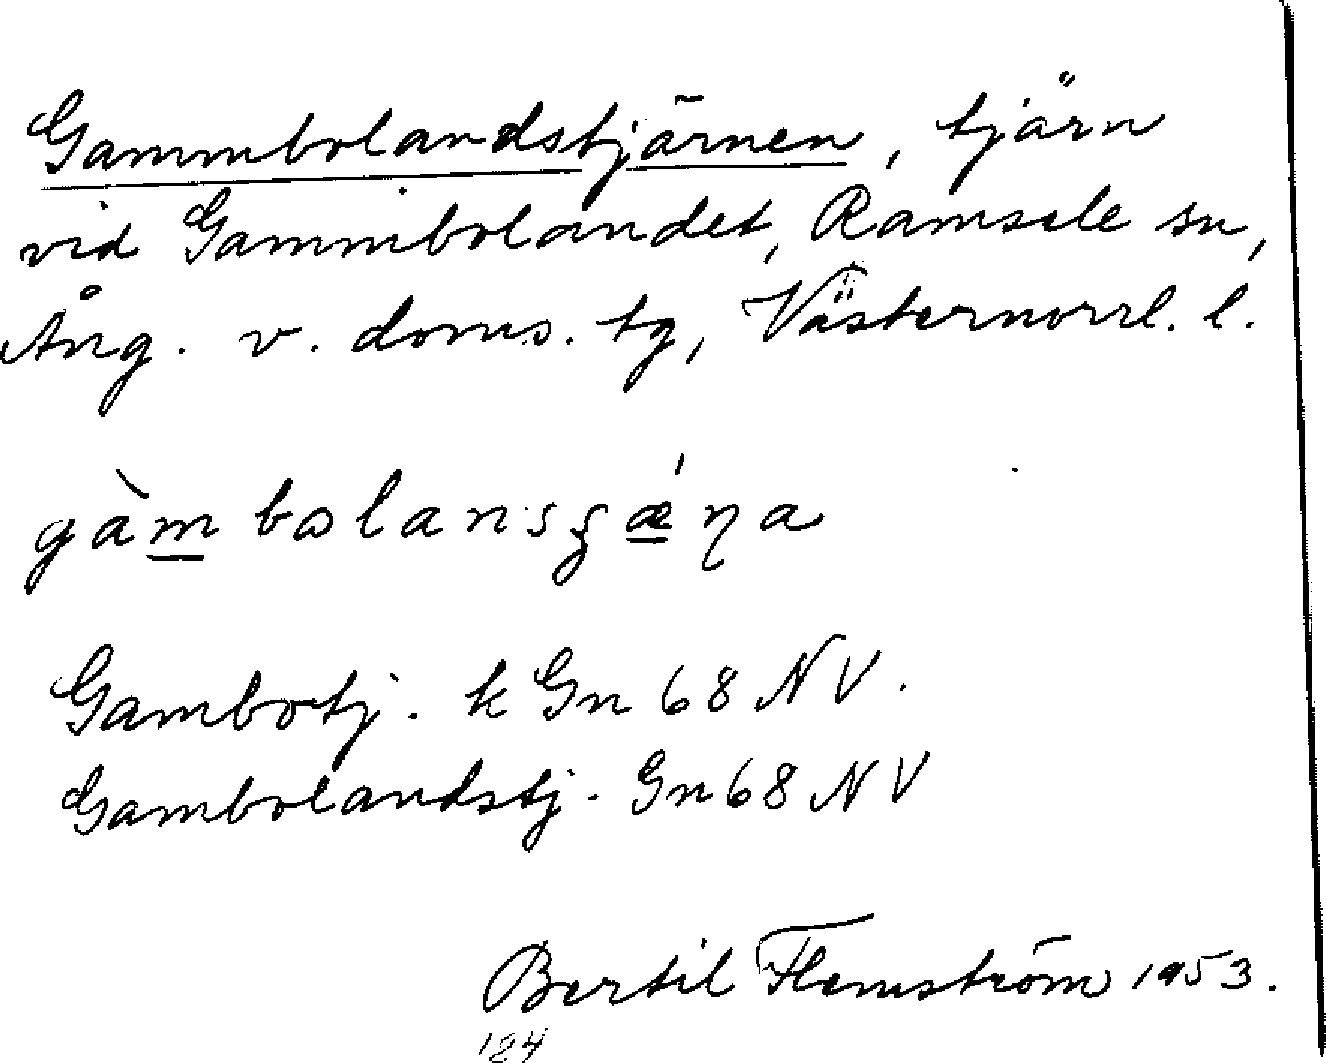 Gammbolandstjärnen, tjärn
vid Gammbolandet, Ramsele sn,
Ång. v. doms. tg, Västernorrl. l.
Gambotj. k Gn 68 NV.
Gambolandstj. Gn 68 NV
Bertil Flemström 1953.
184